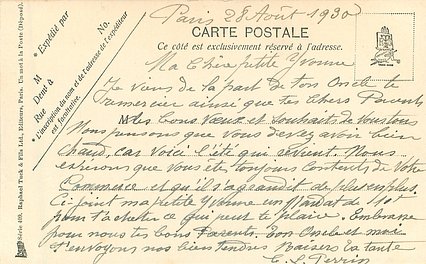 Paris 28 Août 1930
CARTE POSTALE
Ce côté est exclusivement réservé à l'adresse.
Ma Chère petite Yvonne
Je viens de la part de ton Oncle te
remercier ainsi que tes Chers Parents
des bons Vœux et Souhaits de vous tous
Nous pensons que vous devez avoir bien
chaud, car voici l'été qui revient. Nous
espérons que vous êtes toujours contents de Votre
Commerce et qu'il s'agrandit de plus en plus.
Ci-joint ma petite Yvonne un Mandat de
pour t'acheter ce qui peut te plaire. Embrasse
pour nous tes bons Parents. Ton Oncle et moi
t'envoyons nos bien tendres Baisers ta tante
Perrin
* Expédié par
No.
M
Demt à
Rue
* L'inscription du nom et de l'adresse de l'expéditeur
est facultative.
Série 499. Raphael Tuck & Fils Ltd., Editeurs, Paris. Un mot à la Poste (Déposé).